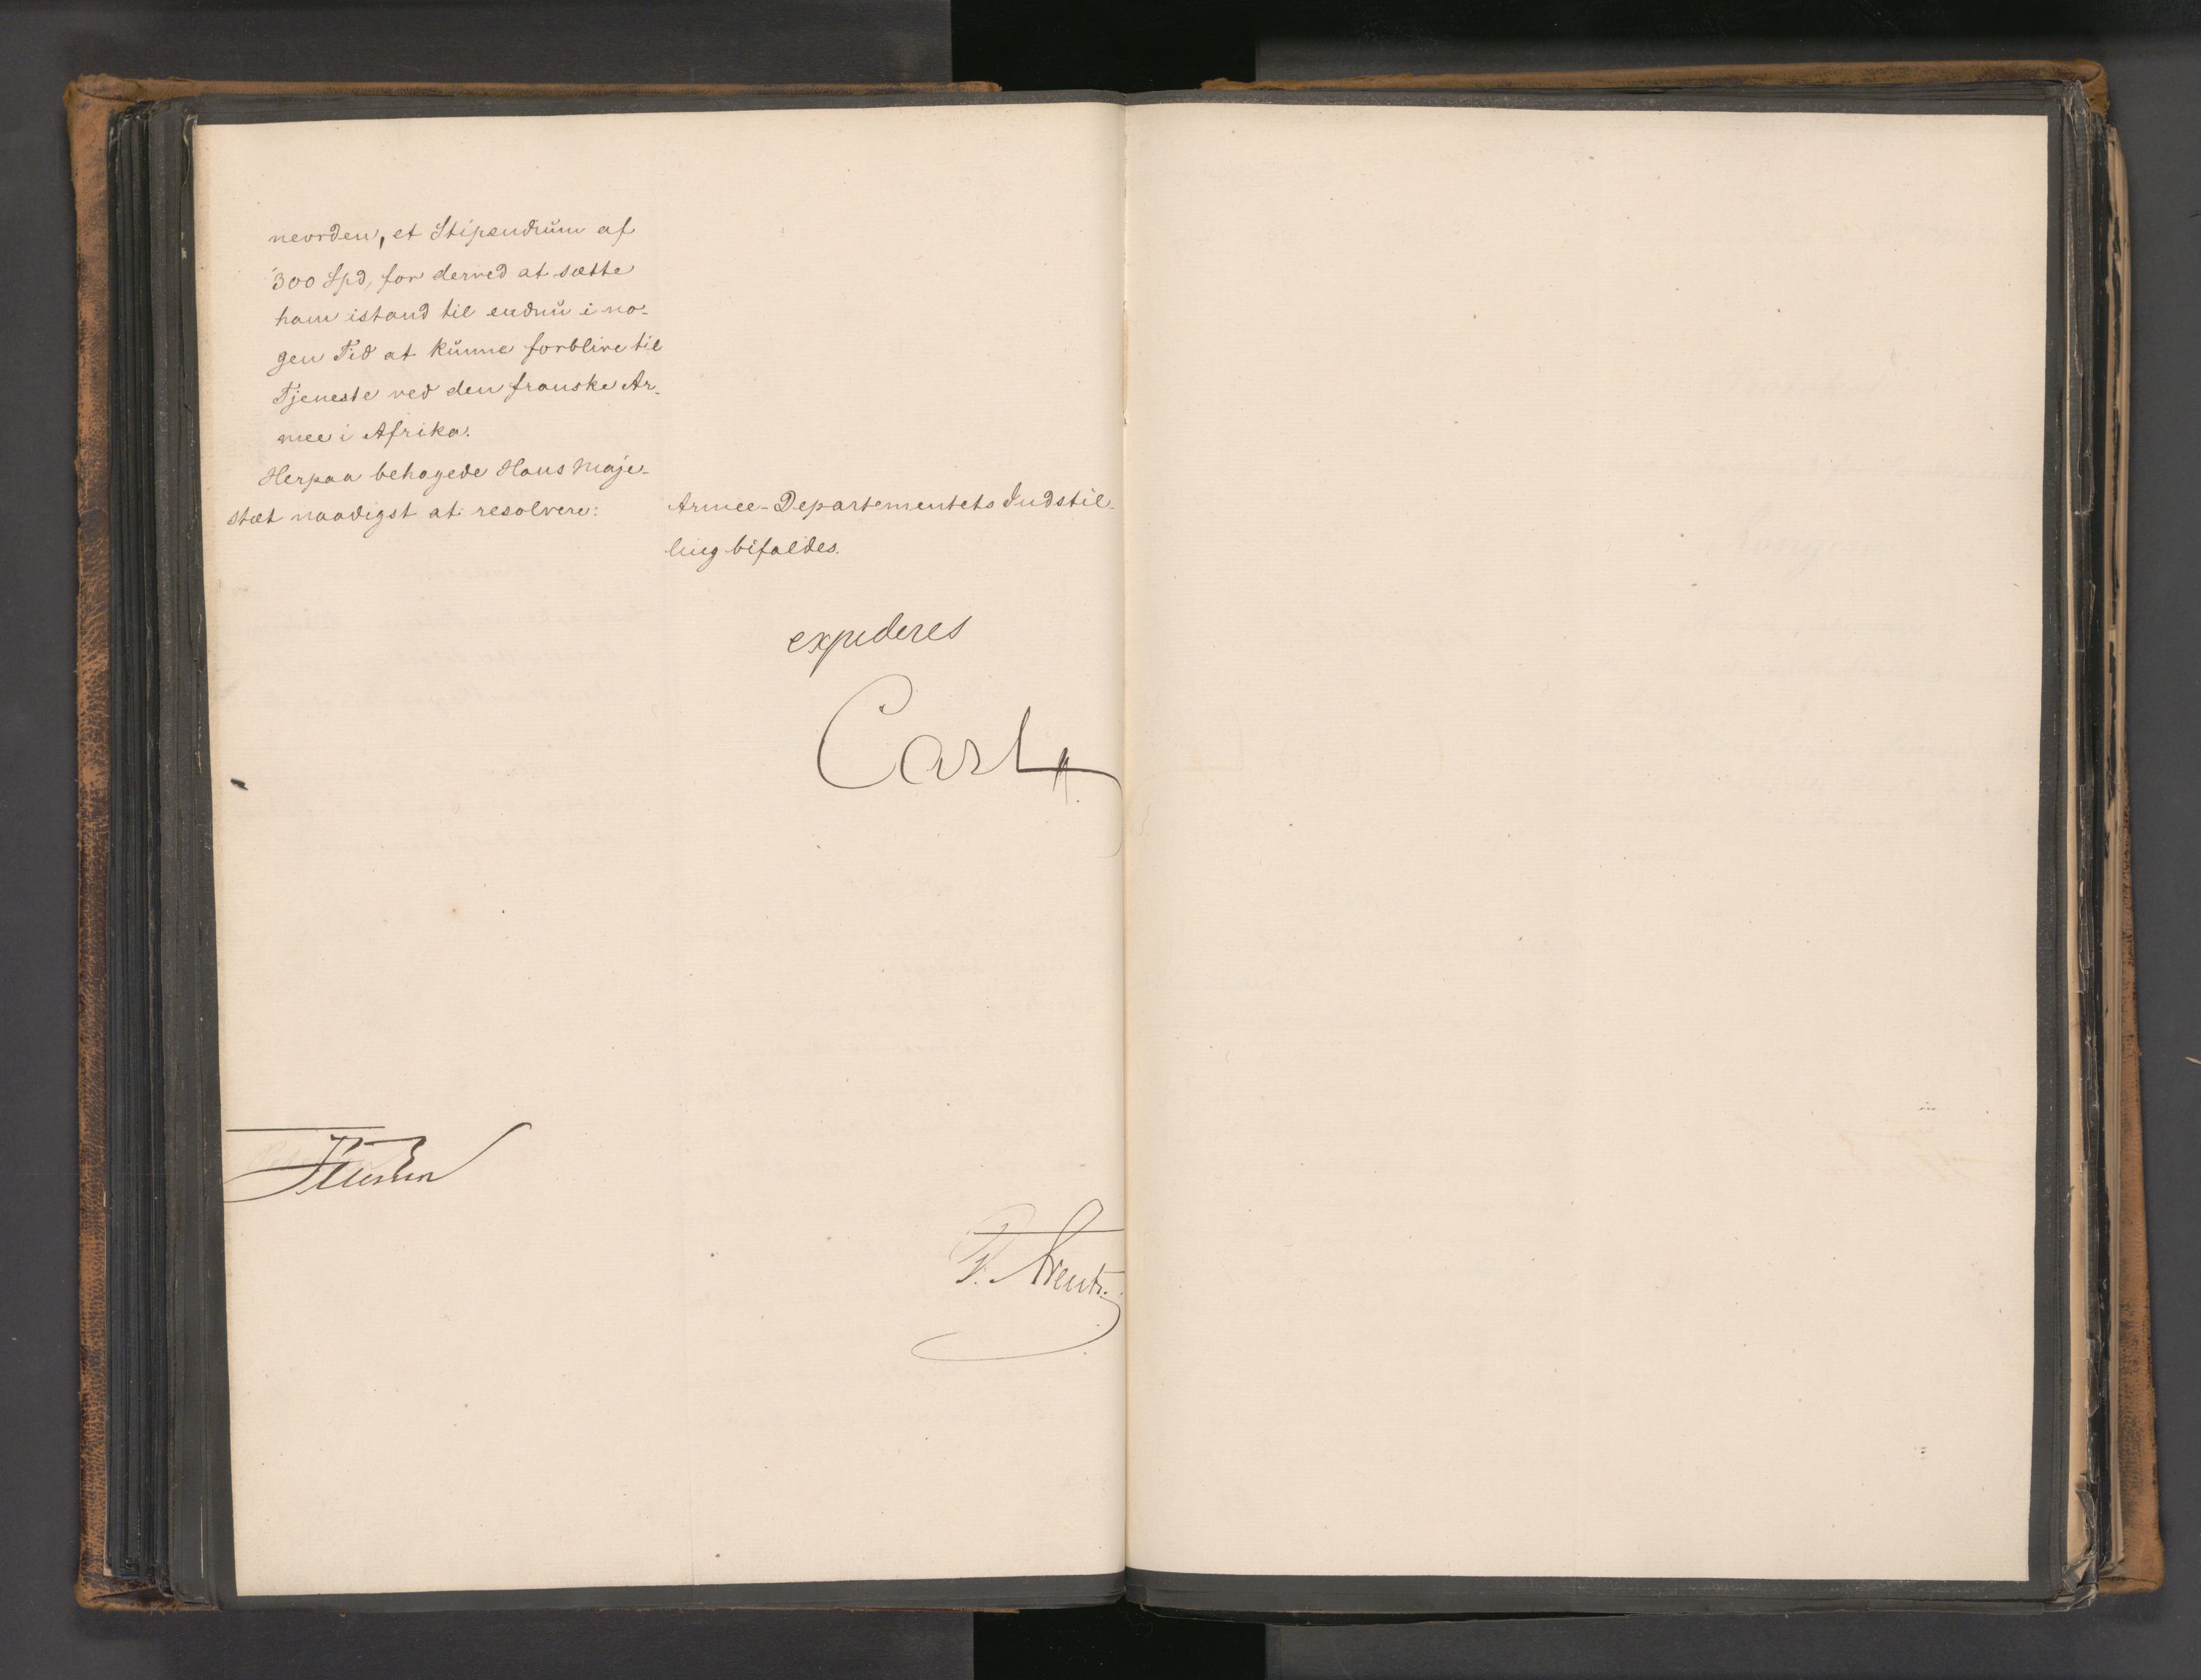 neorden, et Stipendium af
300 Spd, for derved at sætte
ham istand til endnŭ i no-
gen Tid at kŭnne forblive til
Tjeneste ved den franske Ar-
mee i Afrika.
Herpaa behagede Hans Maje-
stæt naadigst at resolvere:
Armee-Departementets Indstil-
ling bifaldes.
expederes
Carl